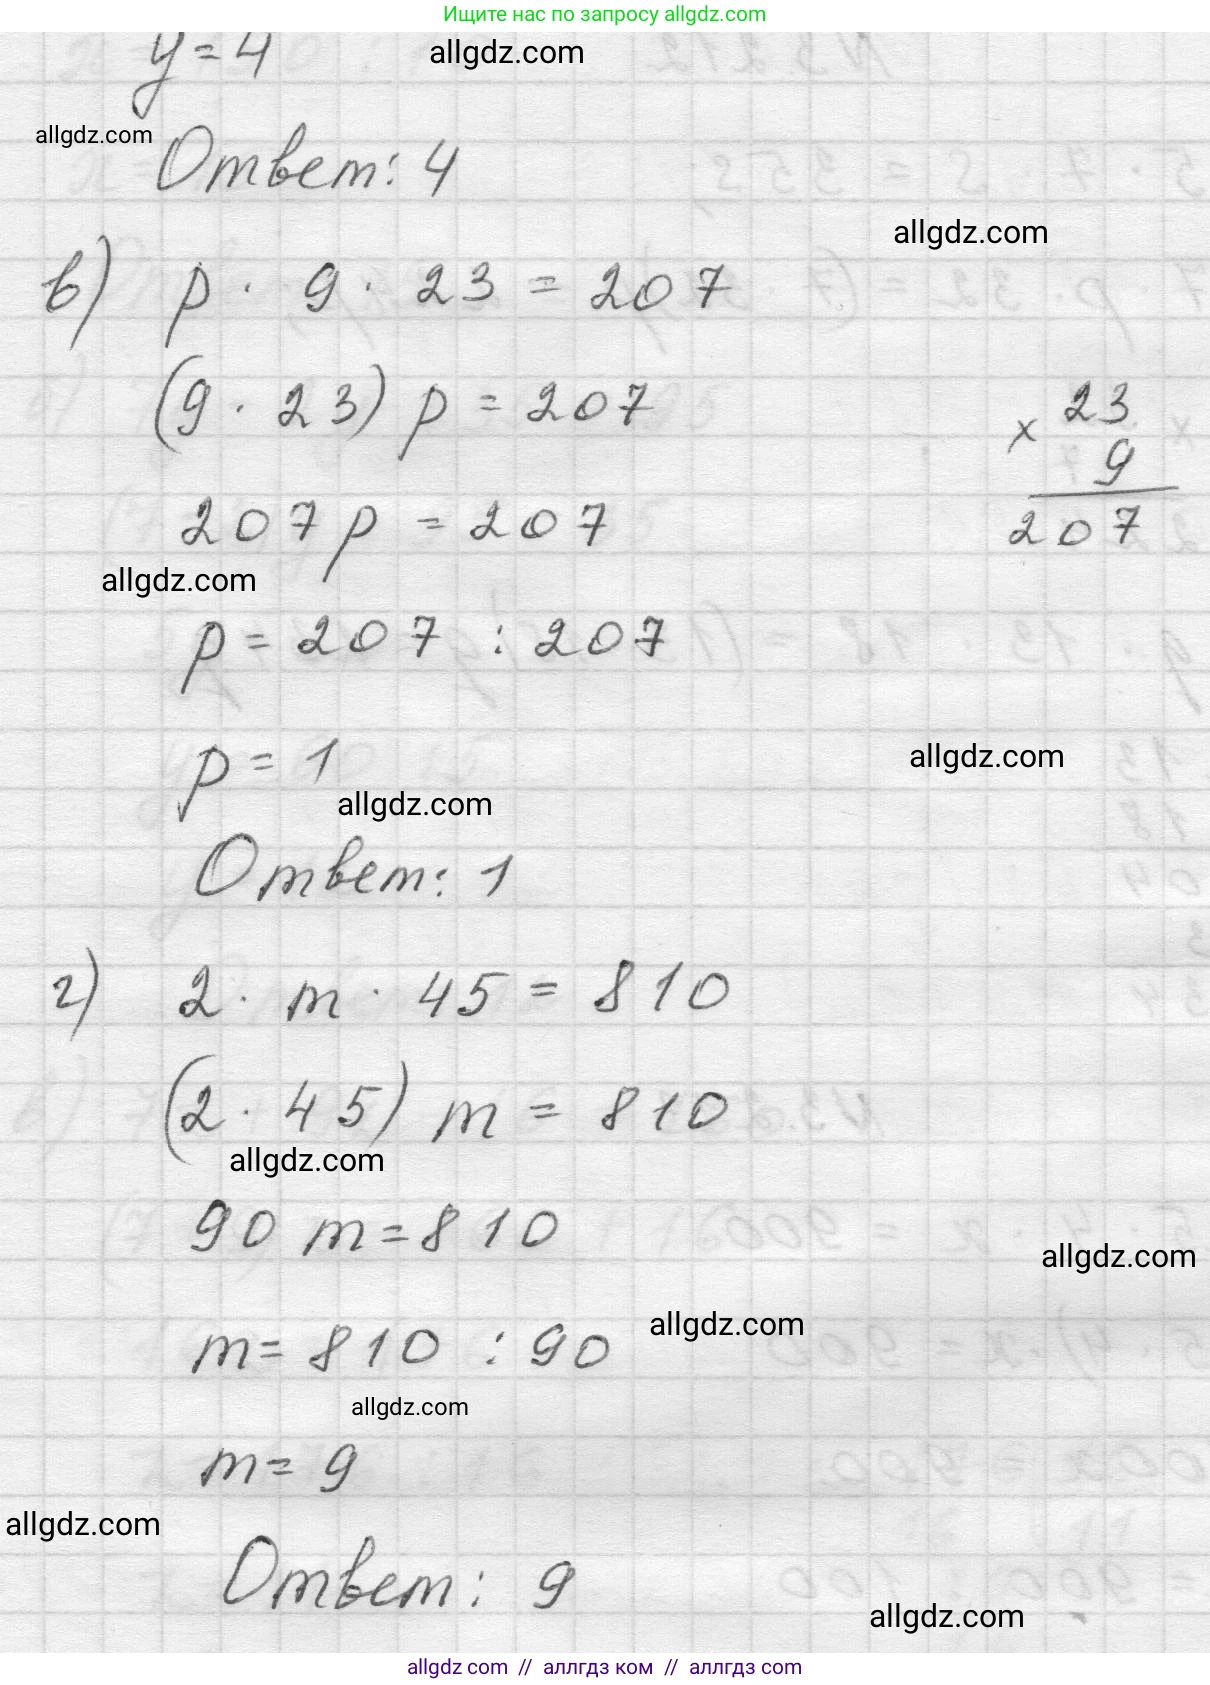 Ищите нас по запросу allgdz.com
y = 4
allgdz.com
allgdz.com
Ответ: 4
allgdz.com
в) p · 9 · 23 = 207
(9 · 23) p = 207
23
× 9
207
207 p = 207
allgdz.com
p = 207 : 207
p = 1
allgdz.com
allgdz.com
Ответ: 1
г) 2 · m · 45 = 810
(2 · 45) m = 810
allgdz.com
90 m = 810
allgdz.com
m = 810 : 90
allgdz.com
allgdz.com
m = 9
allgdz.com
Ответ: 9
allgdz.com
allgdz com // аллгдз ком // аллгдз com